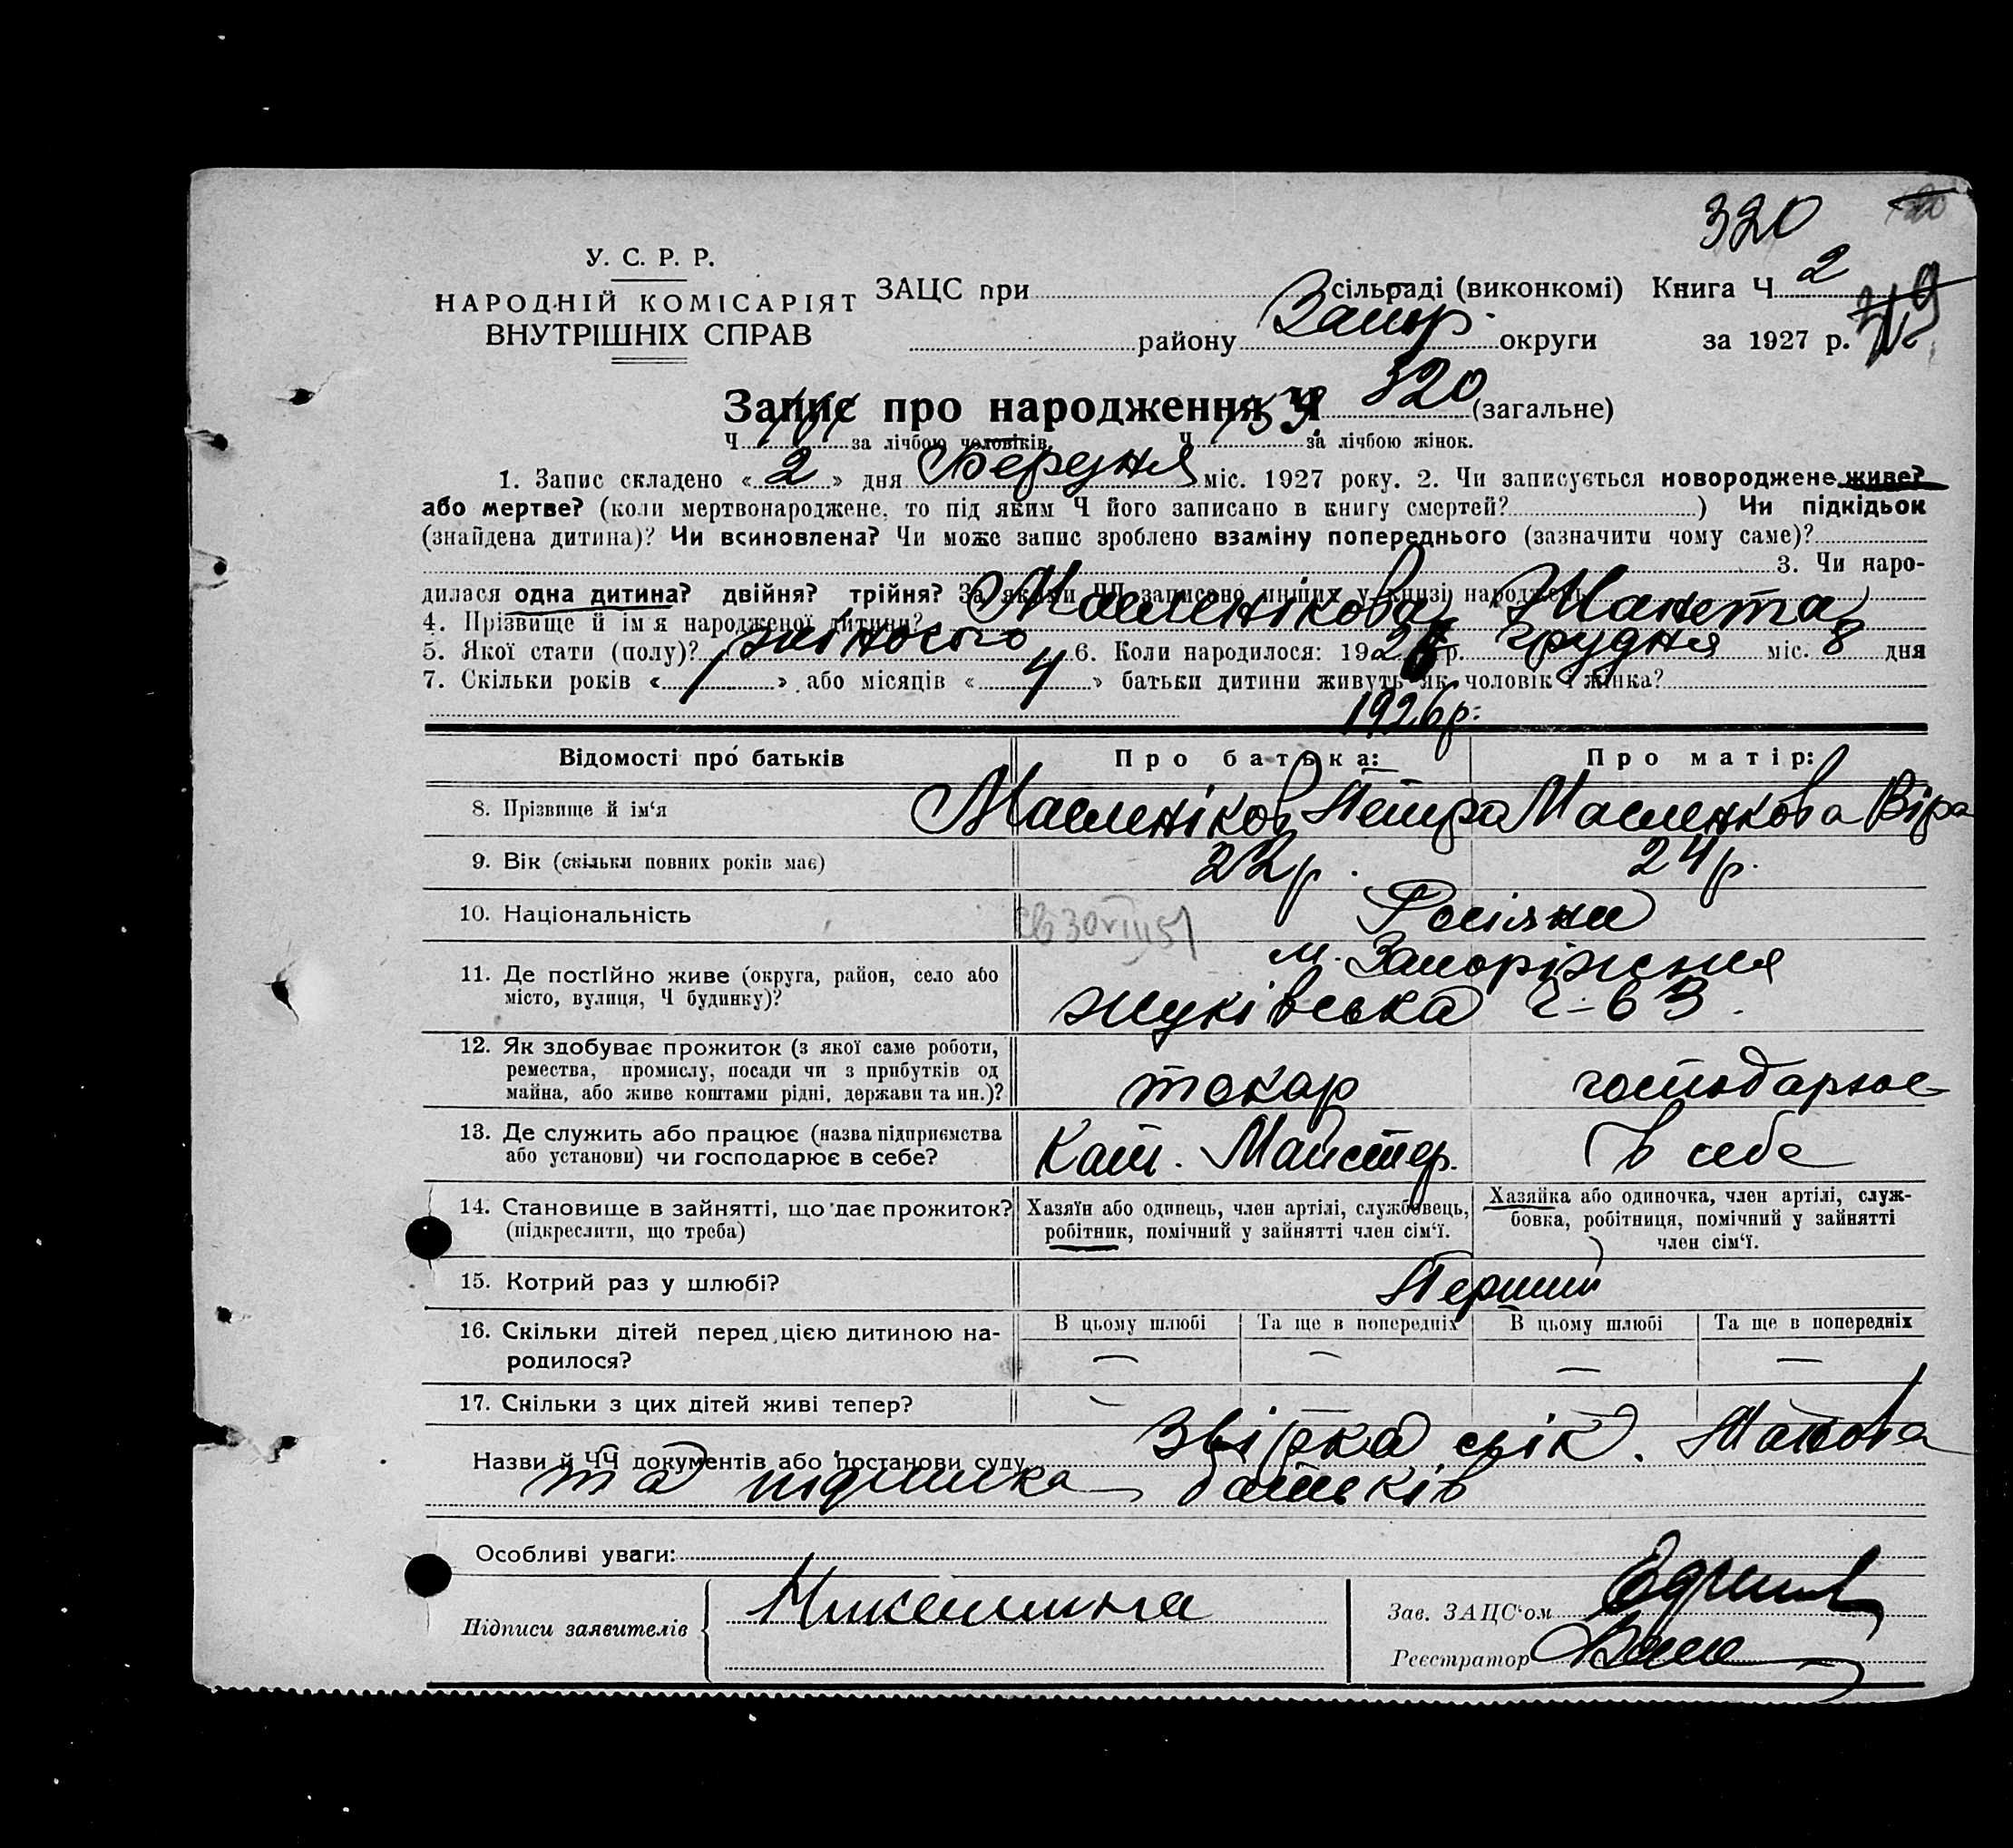 320
У. С. Р. Р.
НАРОДНІЙ КОМІСАРІЯТ
ВНУТРІШНІХ СПРАВ
ЗАЦС при сільраді (виконкомі) Книга Ч 2
району Запор. округи за 1927 р.
Запис про народження Ч 320 (загальне)
Ч за лічбою чоловіків. Ч 159 за лічбою жінок.
1. Запис складено « 2 » дня Березня міс. 1927 року. 2. Чи записується новороджене живе?
або мертве? (коли мертвонароджене, то під яким Ч його записано в книгу смертей? ) Чи підкідьок
(знайдена дитина)? Чи всиновлена? Чи може запис зроблено взаміну попереднього (зазначити чому саме)?
3. Чи наро-
дилася одна дитина? двійня? трійня? За якими ЧЧ записано инших у книзі народжень
4. Прізвище й ім'я народженої дитини? Масленікова Жанета
5. Якої стати (полу)? жіночого 6. Коли народилося: 1926 р. Грудня міс. 8 дня
7. Скільки років « 1 » або місяців « 4 » батьки дитини живуть як чоловік і жінка?
1926 р.
Відомості про батьків Про батька: Про матір:
8. Прізвище й ім'я Масленіков Петро Масленкова Віра
9. Вік (скільки повних років має) 22 р. 24 р.
10. Національність Росіяни
11. Де постійно живе (округа, район, село або
місто, вулиця, Ч будинку)?
м. Запоріжжя
Жуківська ч-63.
12. Як здобуває прожиток (з якої саме роботи,
ремества, промислу, посади чи з прибутків од
майна, або живе коштами рідні, держави та ин.)?
токар господарює
13. Де служить або працює (назва підприємства
або установи) чи господарює в себе?
Кат. Майстер. в себе
14. Становище в зайнятті, що дає прожиток?
(підкреслити, що треба)
Хазяїн або одинець, член артілі, службовець,
робітник, помічний у зайнятті член сім'ї.
Хазяйка або одиночка, член артілі, служ-
бовка, робітниця, помічний у зайнятті
член сім'ї.
15. Котрий раз у шлюбі? Перший
16. Скільки дітей перед цією дитиною на-
родилося?
В цьому шлюбі Та ще в попередніх В цьому шлюбі Та ще в попередніх
— — — —
17. Скільки з цих дітей живі тепер? —
Назви й ЧЧ документів або постанови суду Звірка
та підписка батьків
Особливі уваги:
Підписи заявителів Микешина
Зав. ЗАЦС'ом
Реєстратор